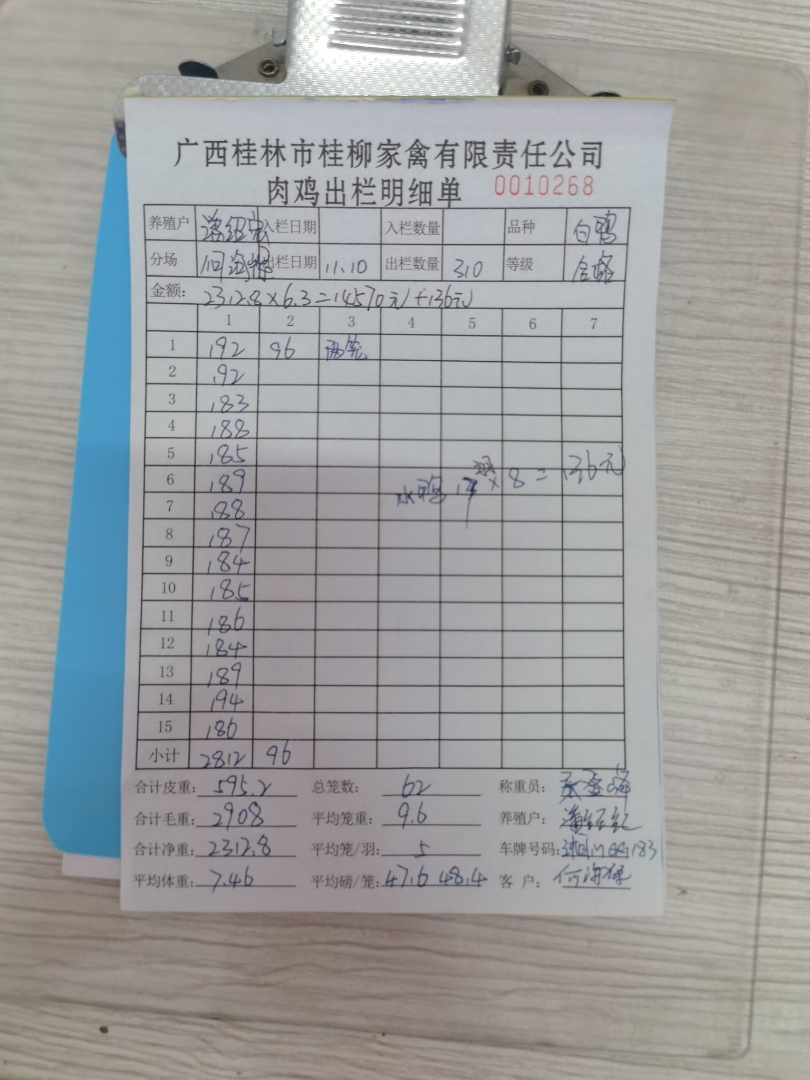 广西桂林市桂柳家禽有限责任公司
肉鸡出栏明细单 0010268
养殖户 入栏日期 入栏数量 品种 白鸭
分场 出栏日期 11.10 出栏数量 310 等级 合格
金额: 2312.8×6.3=14570元+136元
1 2 3 4 5 6 7
1 192 96 两笼
2 192
3 183
4 188
5 185
6 189
水鸭 17 × 8 = 136元
7 188
8 187
9 184
10 185
11 186
12 184
13 189
14 194
15 186
小计 2812 96
合计皮重: 595.2 总笼数: 62 称重员:
合计毛重: 2908 平均笼重: 9.6 养殖户:
合计净重: 2312.8 平均笼/羽: 5 车牌号码:
平均体重: 7.46 平均磅/笼: 47.6 48.4 客户: